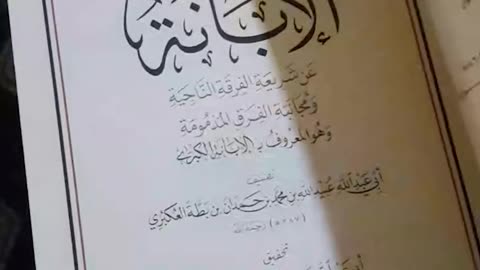 الإبانة
عَن شَريعَةِ الفِرقَةِ النَّاجِيَةِ
وَمُجَانَبَةِ الفِرَقِ المَذمُومَةِ
وَهُوَ المَعْرُوفُ بِـ الإِبَانَةِ الكُبْرَى
تصنيف
أبي عَبْدِ اللهِ عُبَيْدِ اللهِ بنِ مُحَمَّدِ بنِ حَمدَانَ بنِ بَطَّةَ العُكْبَرِيِّ
(٣٨٧هـ) رحمه الله
تحقيق